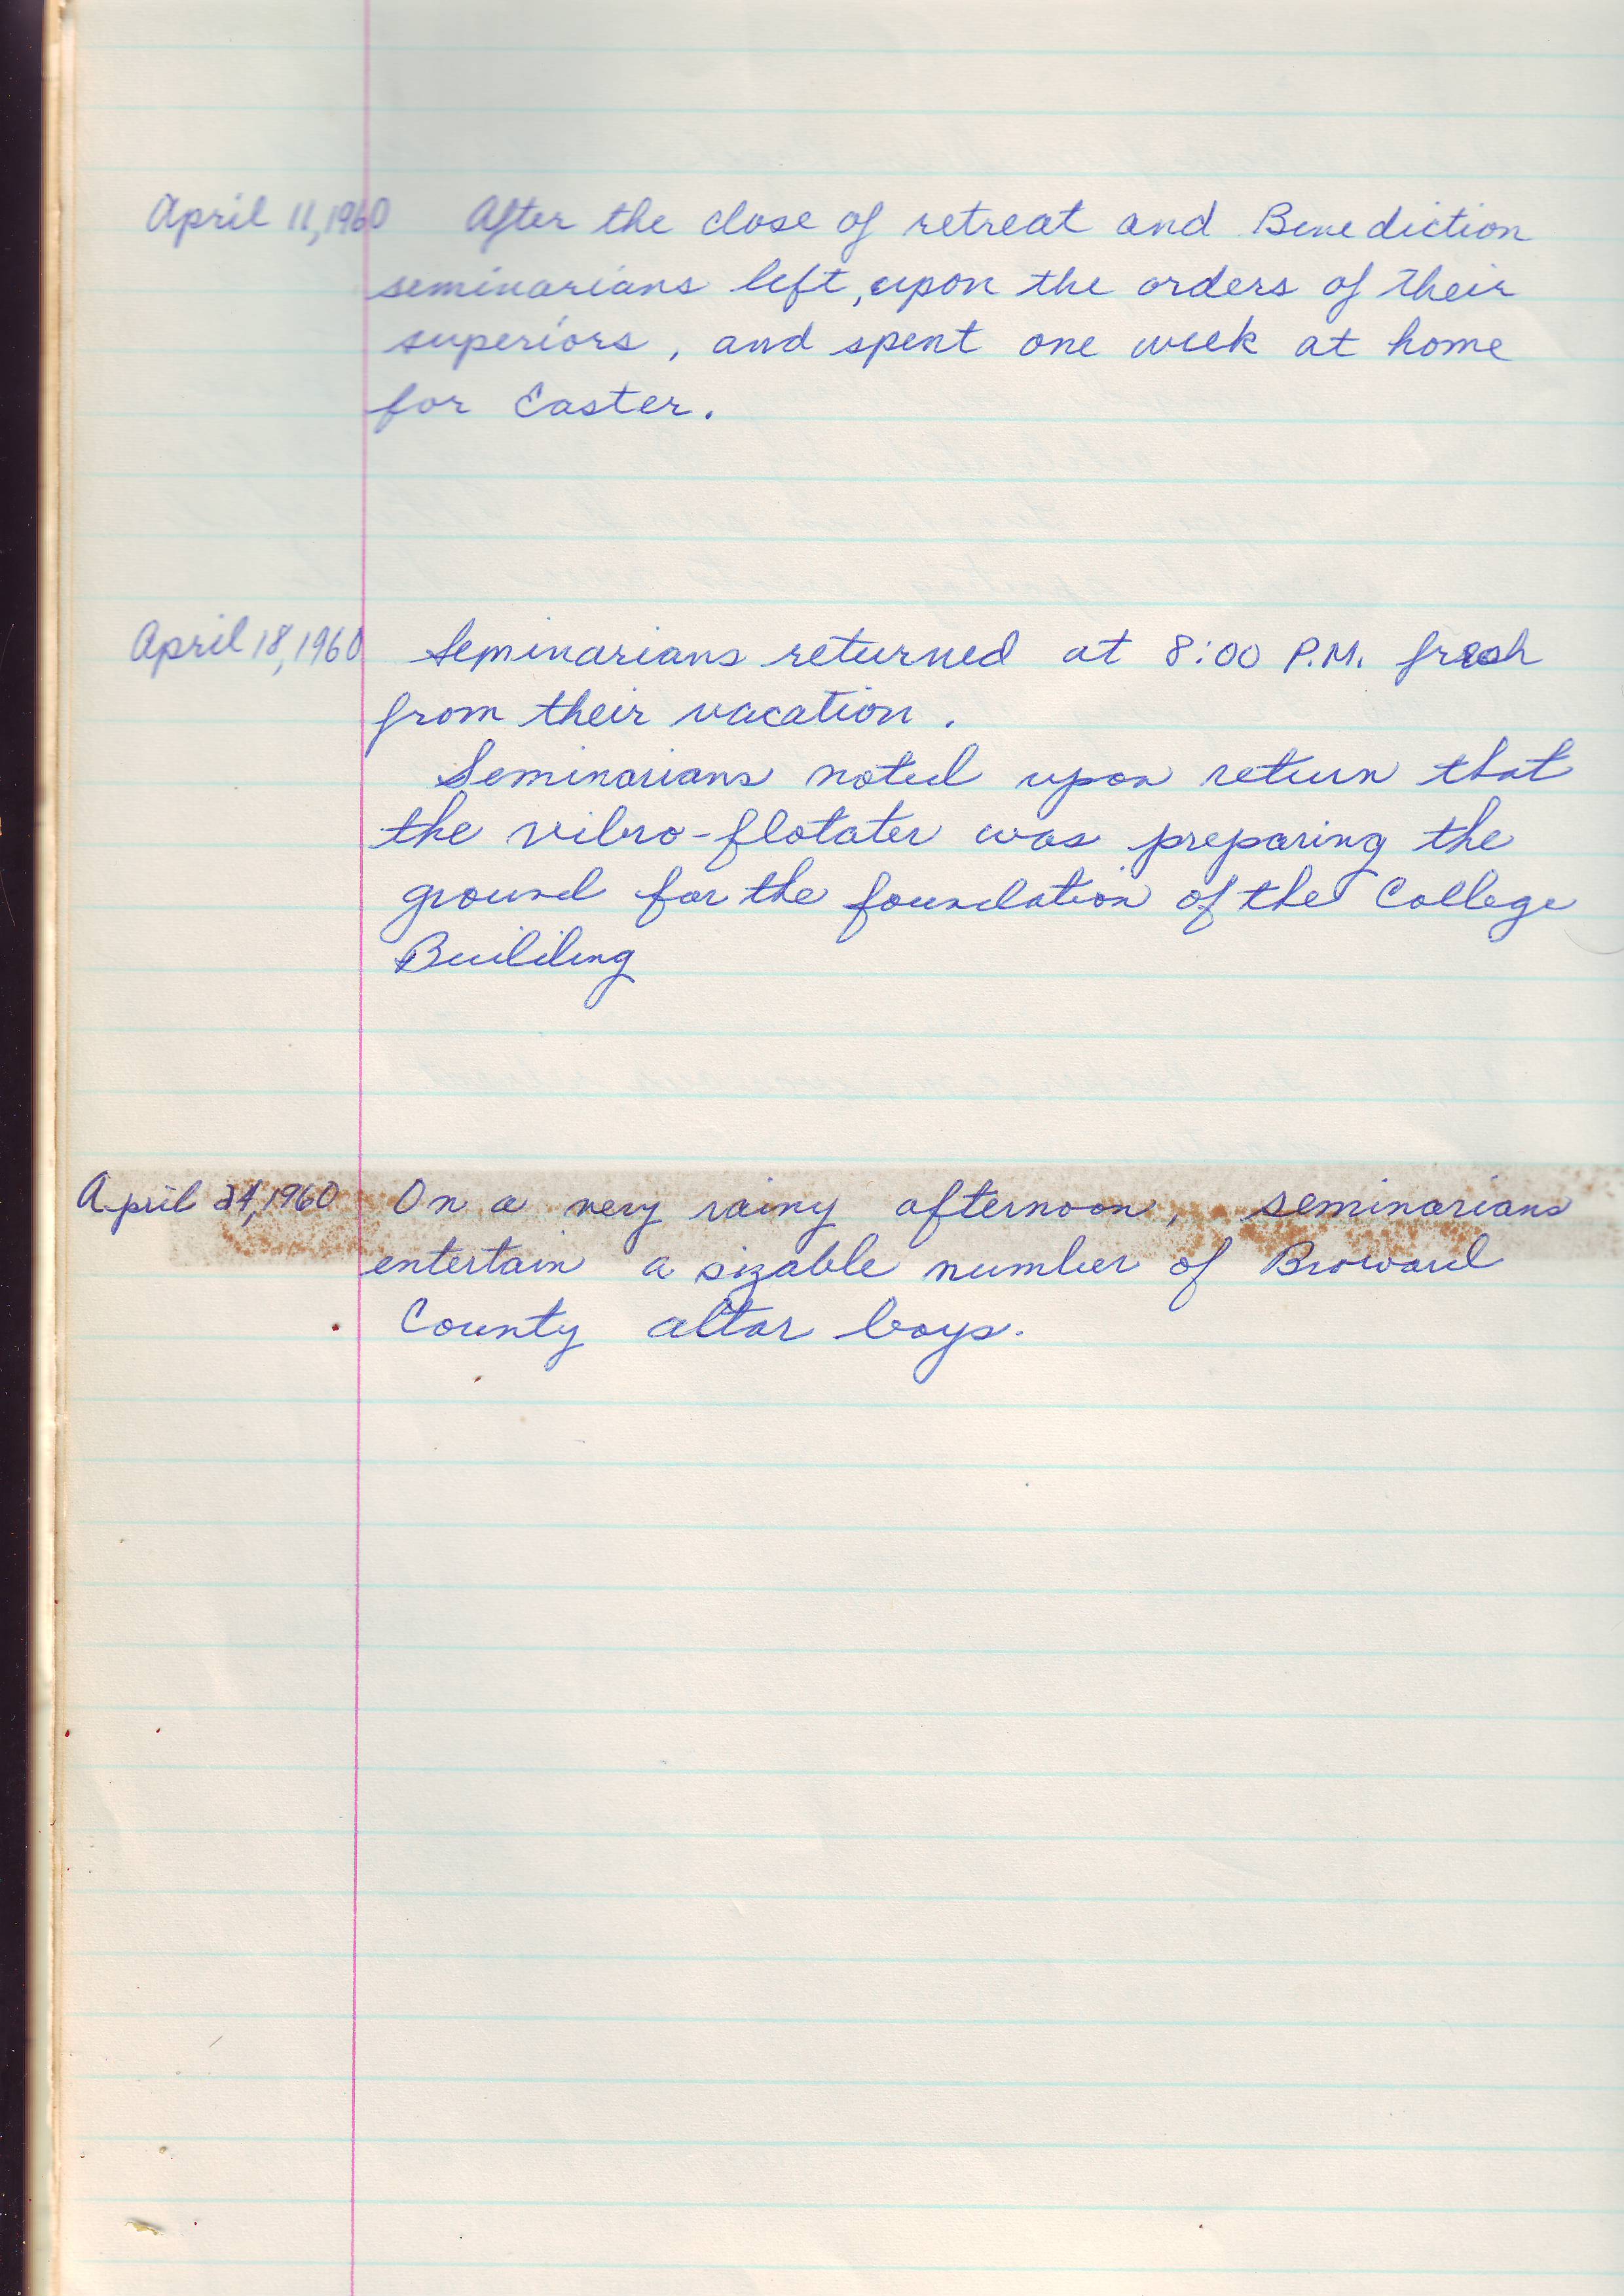 April 11, 1960 After the close of retreat and Benediction
seminarians left, upon the orders of their
superiors, and spent one week at home
for Easter.
April 18, 1960 Seminarians returned at 8:00 P.M. fresh
from their vacation.
Seminarians noted upon return that
the vibro-flotater was preparing the
ground for the foundation of the College
Building
April 24, 1960 On a very rainy afternoon, seminarians
entertain a sizable number of Broward
County altar boys.